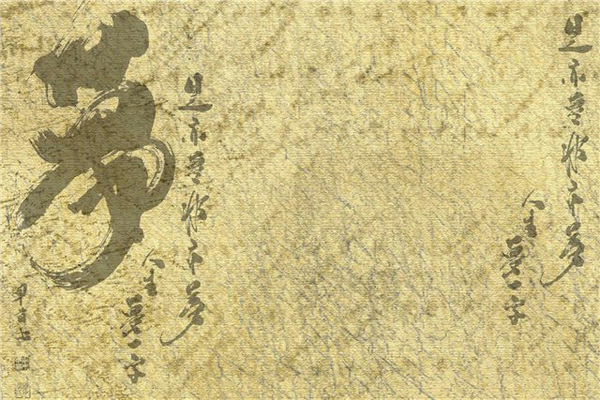 是亦夢非亦夢
人生夢一字
是亦夢非亦夢
人生夢一字
夢